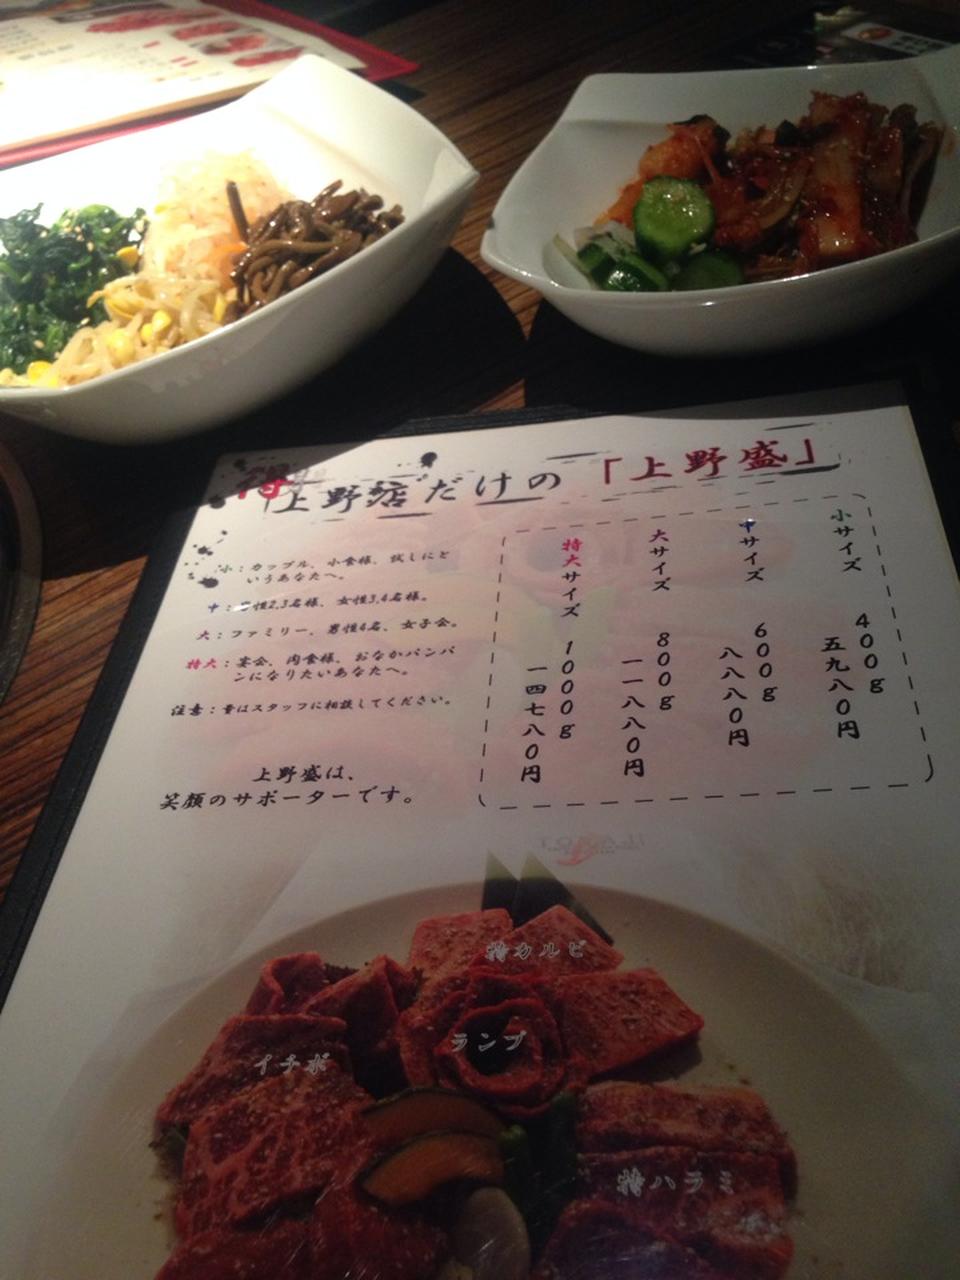 得 上野店だけの「上野盛」
小サイズ 400g 五九八0円
中サイズ 600g 八八八0円
大サイズ 800g 一一八八0円
特大サイズ 1000g 一四七八0円
小：カップル、小食様、試しにと
いうあなたへ。
中：男性2,3名様、女性3,4名様。
大：ファミリー、男性4名、女子会。
特大：宴会、肉食様、おなかパンパ
ンになりたいあなたへ。
注意：量はスタッフに相談してください。
上野盛は、
笑顔のサポーターです。
特カルビ
ランプ
イチボ
特ハラミ